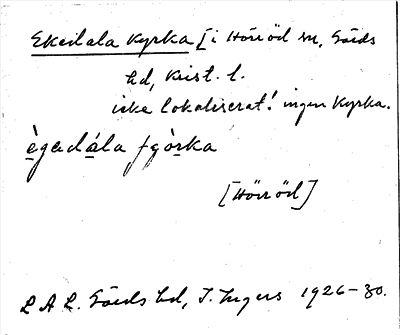 Ekedala Kyrka [i Hörröd sn, Gärds
hd, Krist. l.
icke lokaliserat! ingen Kyrka.
ègedála fɟòrka
[Hörröd]
L A L. Gärds hd, I. Ingers 1926-30.